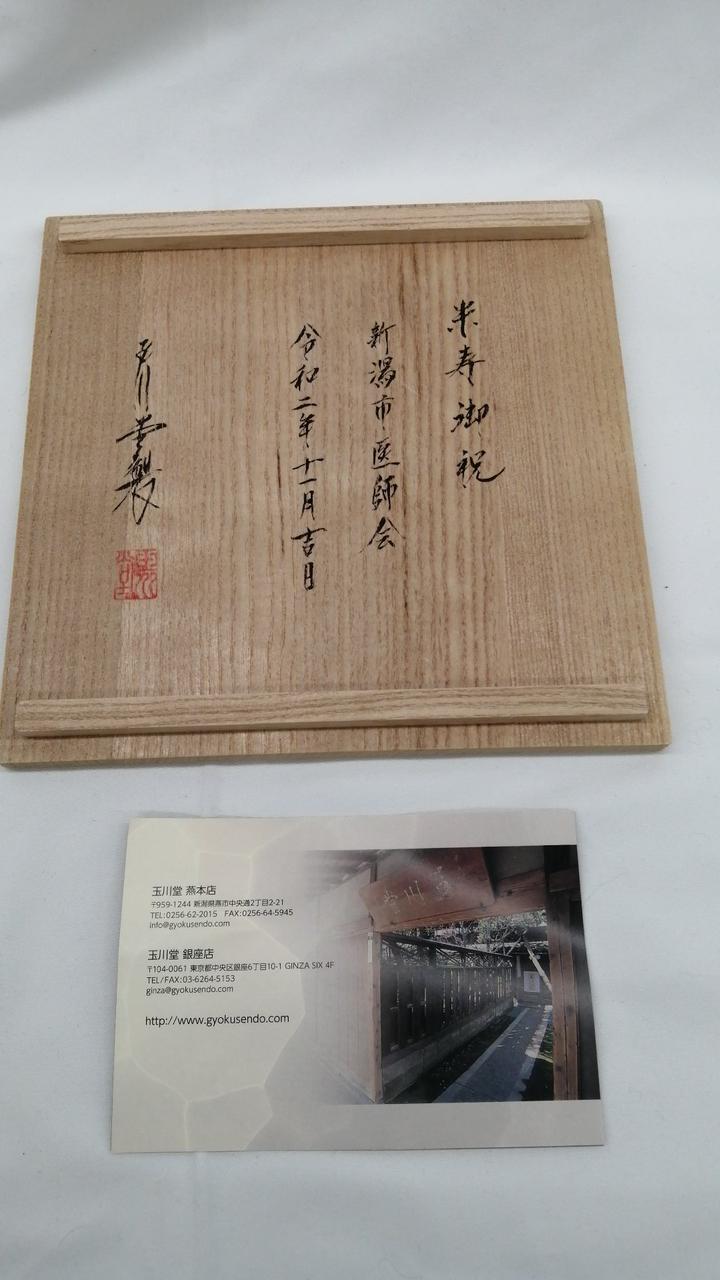 米寿御祝
新潟市医師会
令和二年十一月吉日
玉川堂製
玉川堂 燕本店
〒959-1244 新潟県燕市中央通2丁目2-21
TEL:0256-62-2015 FAX:0256-64-5945
info@gyokusendo.com
玉川堂 銀座店
〒104-0061 東京都中央区銀座6丁目10-1 GINZA SIX 4F
TEL/FAX:03-6264-5153
ginza@gyokusendo.com
http://www.gyokusendo.com